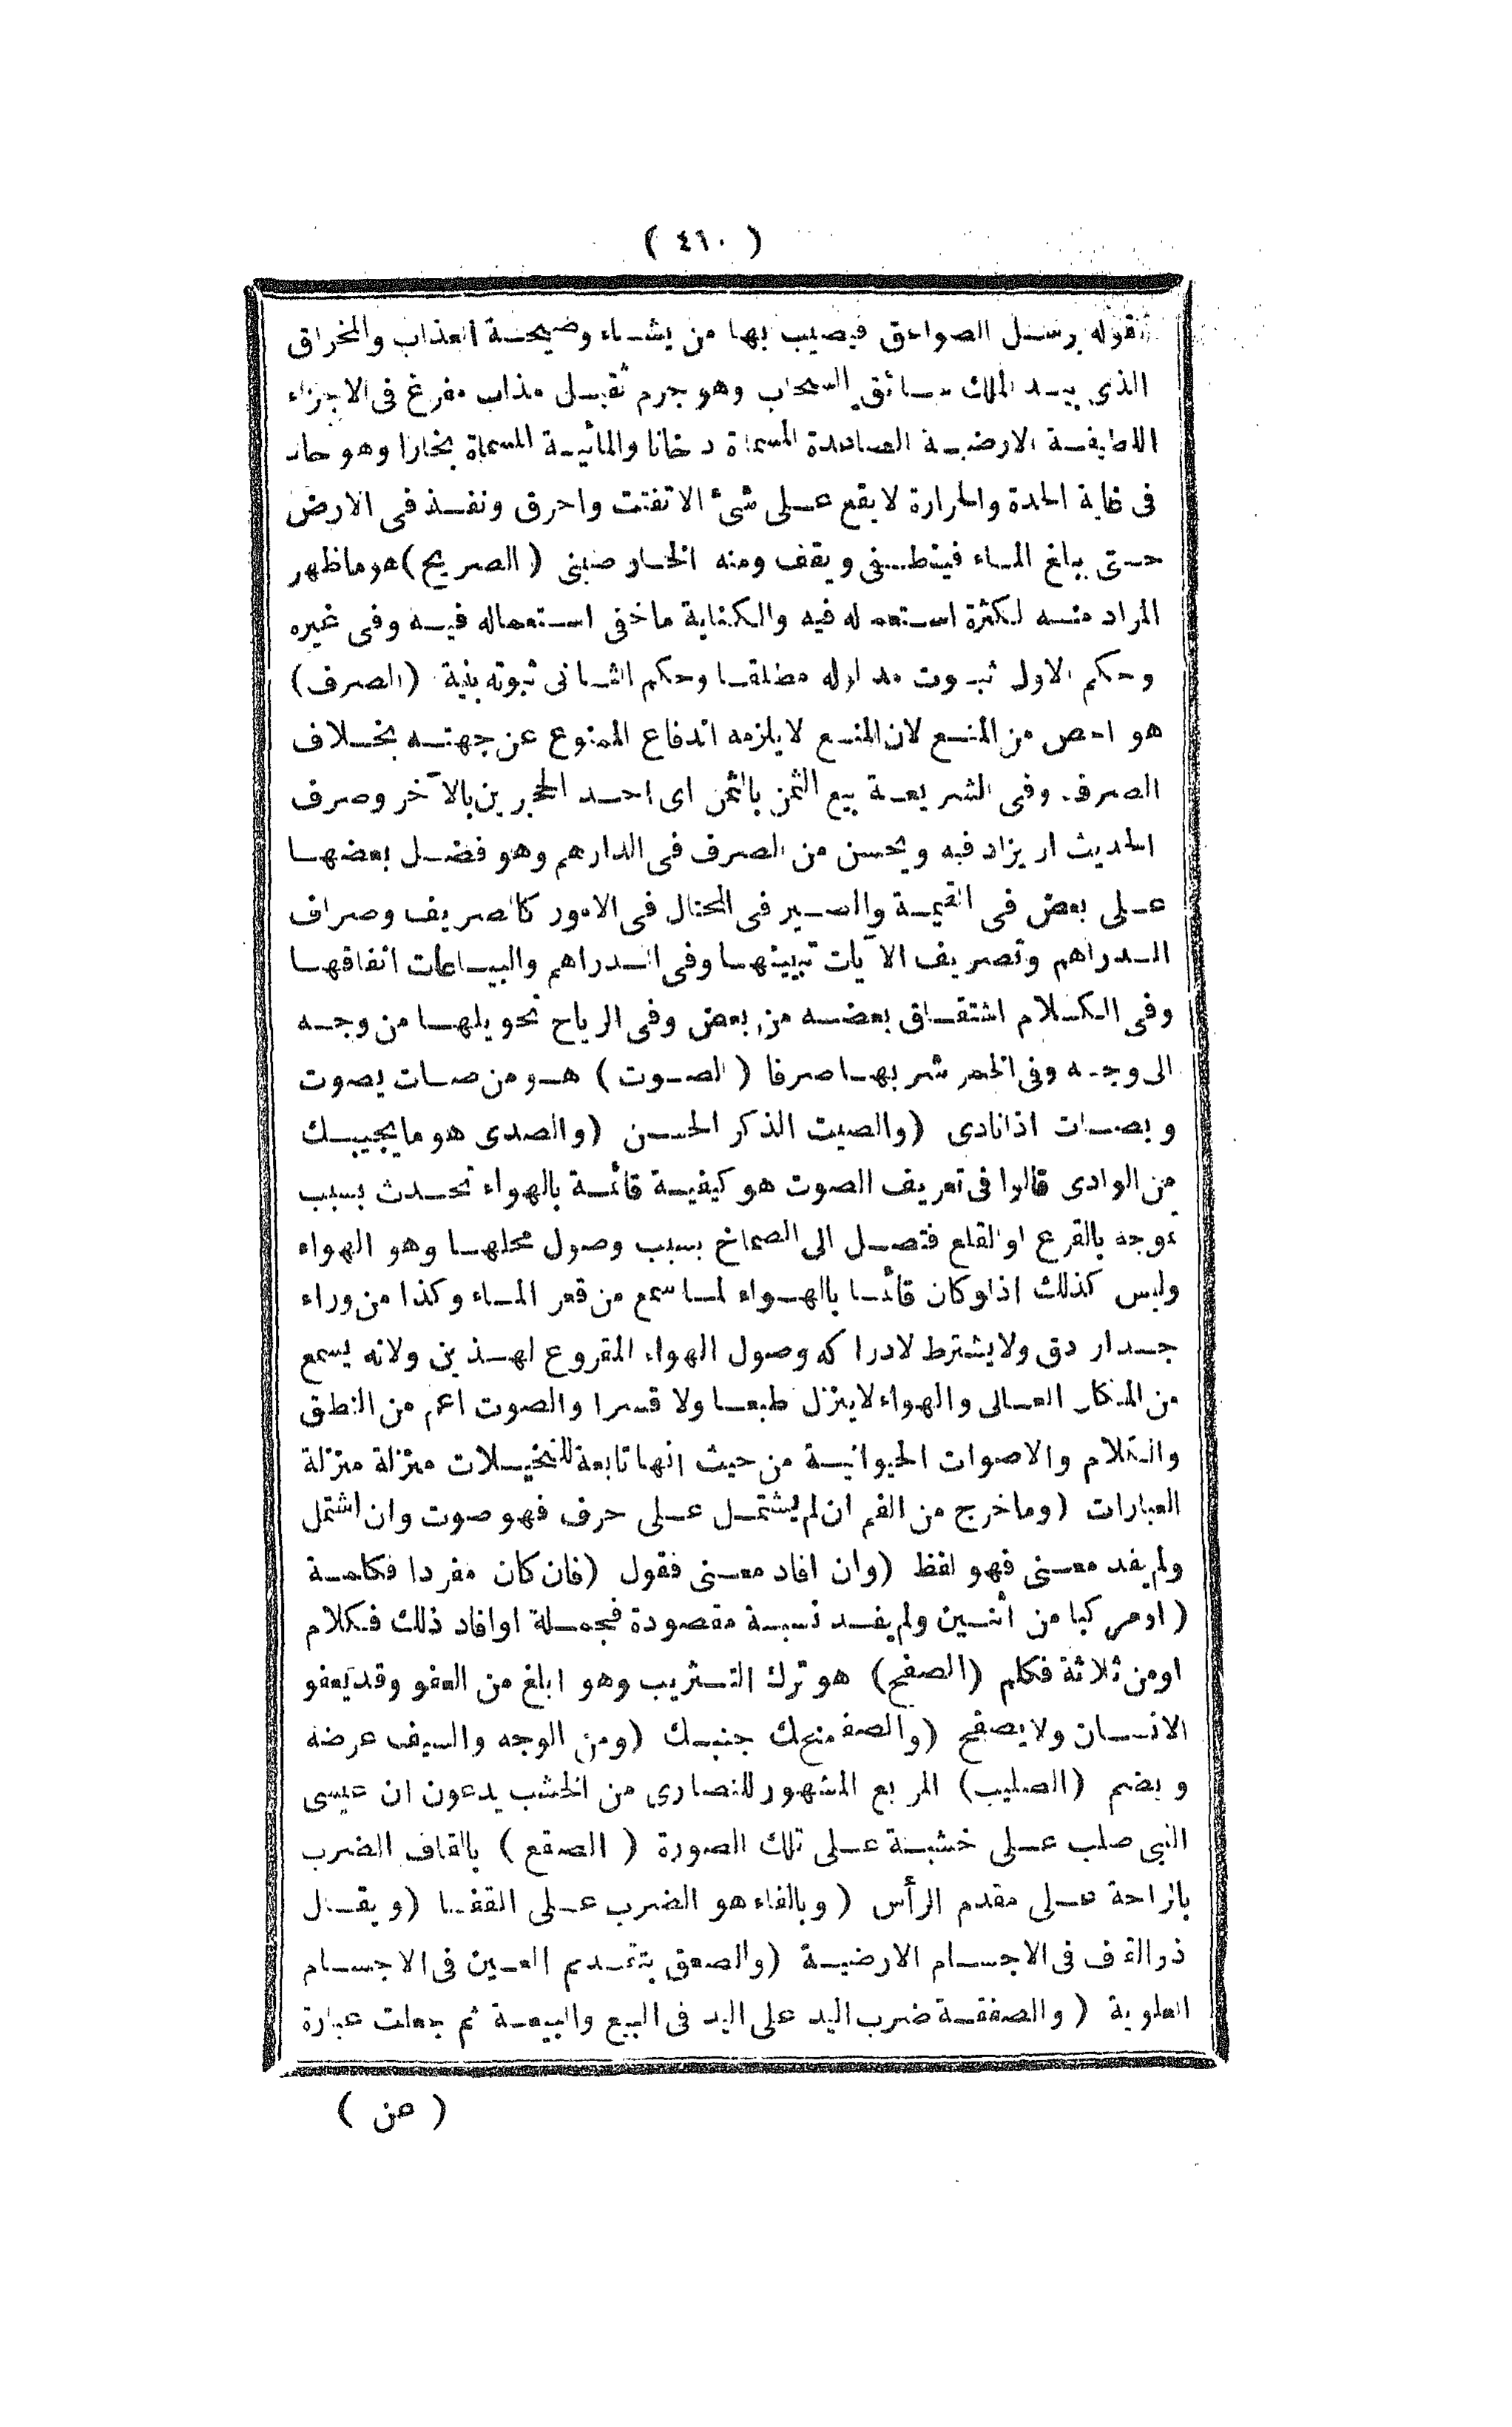 ( ٤٦٠ )
كقوله يرسل الصواعق فيصيب بها من يشاء وصيحة العذاب والمخراق
الذى بيد الملك سائق السحاب وهو جرم ثقيل مذاب مفرغ فى الاجزاء
اللطيفة الارضية الصاعدة المسماة دخانا والمائية المسماة بخارا وهو حار
فى غاية الحدة والحرارة لا يقع على شئ الا تفتت واحرق ونفذ فى الارض
حتى يبلغ الماء فينطفى ويقف ومنه الخارصينى (الصريح) هو ما ظهر
المراد منه لكثرة استعماله فيه والكناية ما خفى استعماله فيه وفى غيره
وحكم الاول ثبوت مدلوله مطلقا وحكم الثانى ثبوته بنية (الصرف)
هو اخص من المنع لان المنع لا يلزمه اندفاع الممنوع عن جهته بخلاف
الصرف. وفى الشريعة بيع الثمن بالثمن اى احد الحجرين بالآخر وصرف
الحديث ان يزاد فيه ويحسن من الصرف فى الدارهم وهو فضل بعضها
على بعض فى القيمة والصير فى المحتال فى الامور كالصريف وصراف
الدراهم وتصريف الآيات تبيينها وفى الدراهم والبياعات انفاقها
وفى الكلام اشتقاق بعضه من بعض وفى الرياح تحويلها من وجه
الى وجه وفى الخمر شربها صرفا (الصوت) هو من صات يصوت
ويصات اذا نادى (والصيت الذكر الحسن (والصدى هو ما يجيبك
من الوادى قالوا فى تعريف الصوت هو كيفية قائمة بالهواء تحدث بسبب
تموجه بالقرع او القلع فتصل الى الصماخ بسبب وصول محلها وهو الهواء
وليس كذلك اذ لو كان قائما بالهواء لما سمع من قعر الماء وكذا من وراء
جدار دق ولا يشترط لادراكه وصول الهواء المقروع لهذين ولانه يسمع
من المكان العالى والهواء لا ينزل طبعا ولا قسرا والصوت اعم من النطق
والكلام والاصوات الحيوانية من حيث انها تابعة للتخيلات منزلة منزلة
العبارات (وما خرج من الفم ان لم يشتمل على حرف فهو صوت وان اشتمل
ولم يفد معنى فهو لفظ (وان افاد معنى فقول (فان كان مفردا فكلمة
(او مركبا من اثنين ولم يفد نسبة مقصودة فجملة او افاد ذلك فكلام
او من ثلاثة فكلم (الصفح) هو ترك التثريب وهو ابلغ من العفو وقد يعفو
الانسان ولا يصفح (والصفح منك جنبك (ومن الوجه والسيف عرضه
ويضم (الصليب) المربع المشهور للنصارى من الخشب يدعون ان عيسى
النبى صلب على خشبة على تلك الصورة (الصقع) بالقاف الضرب
بالراحة على مقدم الرأس (وبالفاء هو الضرب على القفا (ويقال
ذو القاف فى الاجسام الارضية (والصعق بتقديم العين فى الاجسام
العلوية (والصفقة ضرب اليد على اليد فى البيع والبيعة ثم جعلت عبارة
( من )